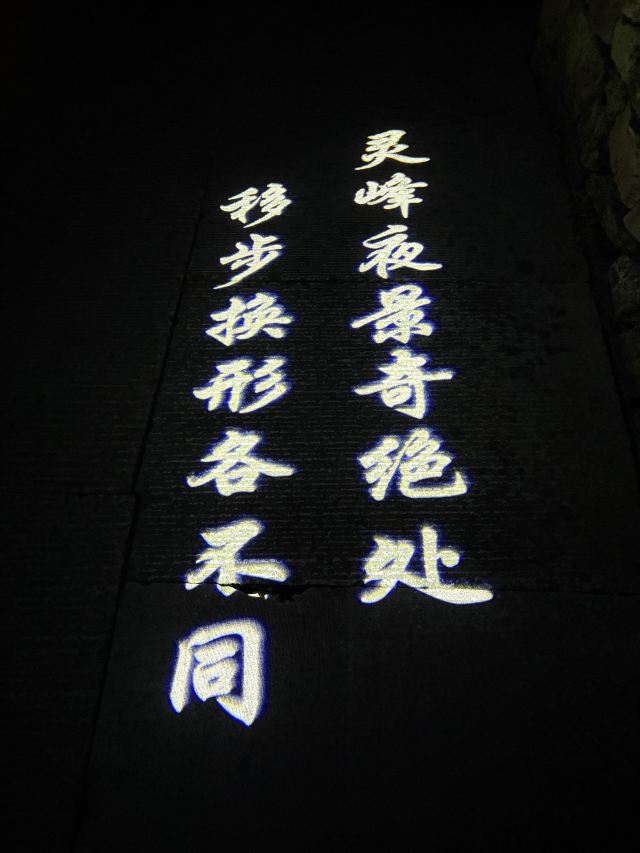 灵峰夜景奇绝处
移步换形各不同